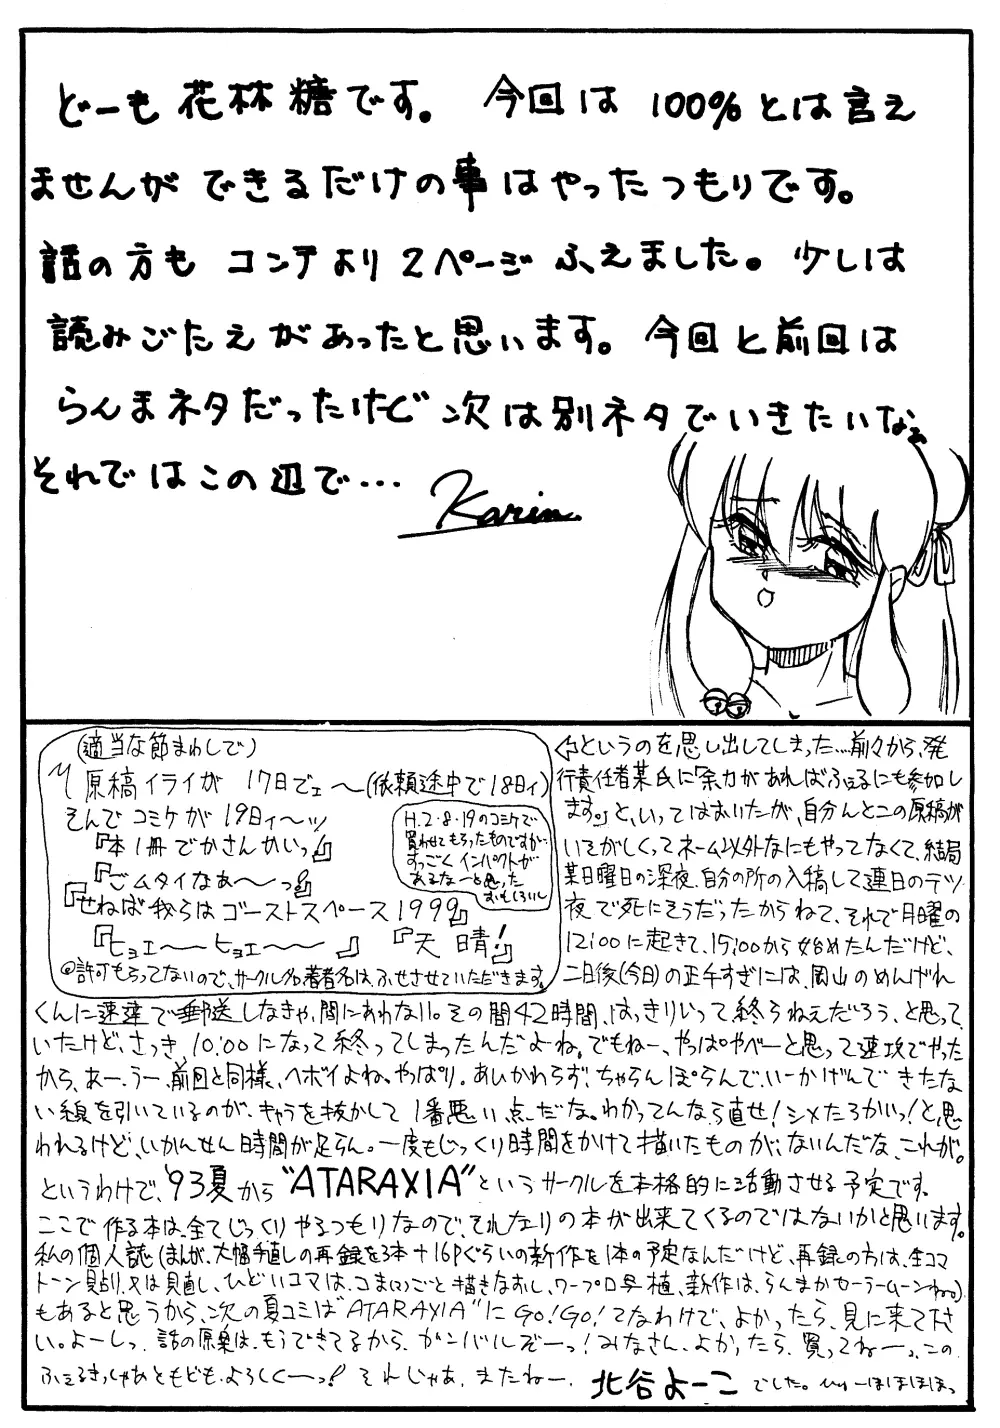 どーも 花林糖です。 今回は 100%とは言え
ませんが できるだけの事はやったつもりです。
話の方も コンテより 2ページ ふえました。少しは
読みごたえがあったと思います。今回と前回は
らんまネタだったけど 次は別ネタでいきたいなぁ
それではこの辺で…
Karin
(適当な節まわしで)
原稿イライが 17日でェ〜(依頼途中で18日ィ)
そんで コミケが 19日ィ〜ッ
『本1冊でかさんかいっ』
『ごムタイなあ〜っ!』
『せねば 我らは ゴーストスペース1999』
『ヒョエ〜 ヒョエ〜 』 『天晴!』
H.2・8・19のコミケで
買わせてもらったものですが…
すっごく インパクトが
あるな〜と思った
おもしろいし
◎許可もらってないので、サークル名、著者名は、ふせさせていただきます。
というのを思い出してしまった…前々から、発
行責任者某氏に「余力があればふぇるにも参加し
ます。」と、いってはおいたが、自分んとこの原稿が
いそがしくってネーム以外なにもやってなくて、結局
某日曜日の深夜、自分の所の入稿して連日のテツ
夜で死にそうだったからねて、それで月曜の
12:00に起きて、15:00から始めたんだけど、
二日後(今日)の正午すぎには、岡山のめんげれ
くんに速達で郵送しなきゃ、間にあわない。その間42時間、はっきりいって終らねえだろう、と思って
いたけど、さっき、10:00になって終ってしまったんだよね。でもねー、やっぱやべーと思って速攻でやった
から、あー、うー、前回と同様、ヘボイよね。やっぱり。あいかわらず、ちゃらんぽらんで、いーかげんで きたな
い線を引いているのが、キャラを抜かして 1番悪い点だな。わかってんなら直せ!シメたろかいっ!と、思
われるけど、いかんせん時間が足らん。一度もじっくり時間をかけて描いたものが、ないんだな、これが。
というわけで、'93夏から "ATARAXIA"というサークルを本格的に活動させる予定です。
ここで作る本は、全てじっくりやるつもりなので、それなりの本が出来てくるのではないかと思います。
私の個人誌(まんが、大幅手直しの再録を3本+16Pぐらいの新作を1本の予定なんだけど、再録の方は、全コマ
トーン貼り、又は見直し、ひどいコマは、コマごと描きなおし、ワープロ写植、新作は、らんまかセーラームーンねっ)
もあると思うから、次の夏コミは"ATARAXIA"にGO!GO!てなわけで、よかったら、見に来て下さ
い。よーしっ、話の原案は、もうできてるから、ガンバルぞーっ!みなさん、よかったら、買ってねーっ、この
ふぇるきっしゃあともども、よろしくーっ! それじゃあ、またねー、 北谷よーこ でした。 ほほほほっ